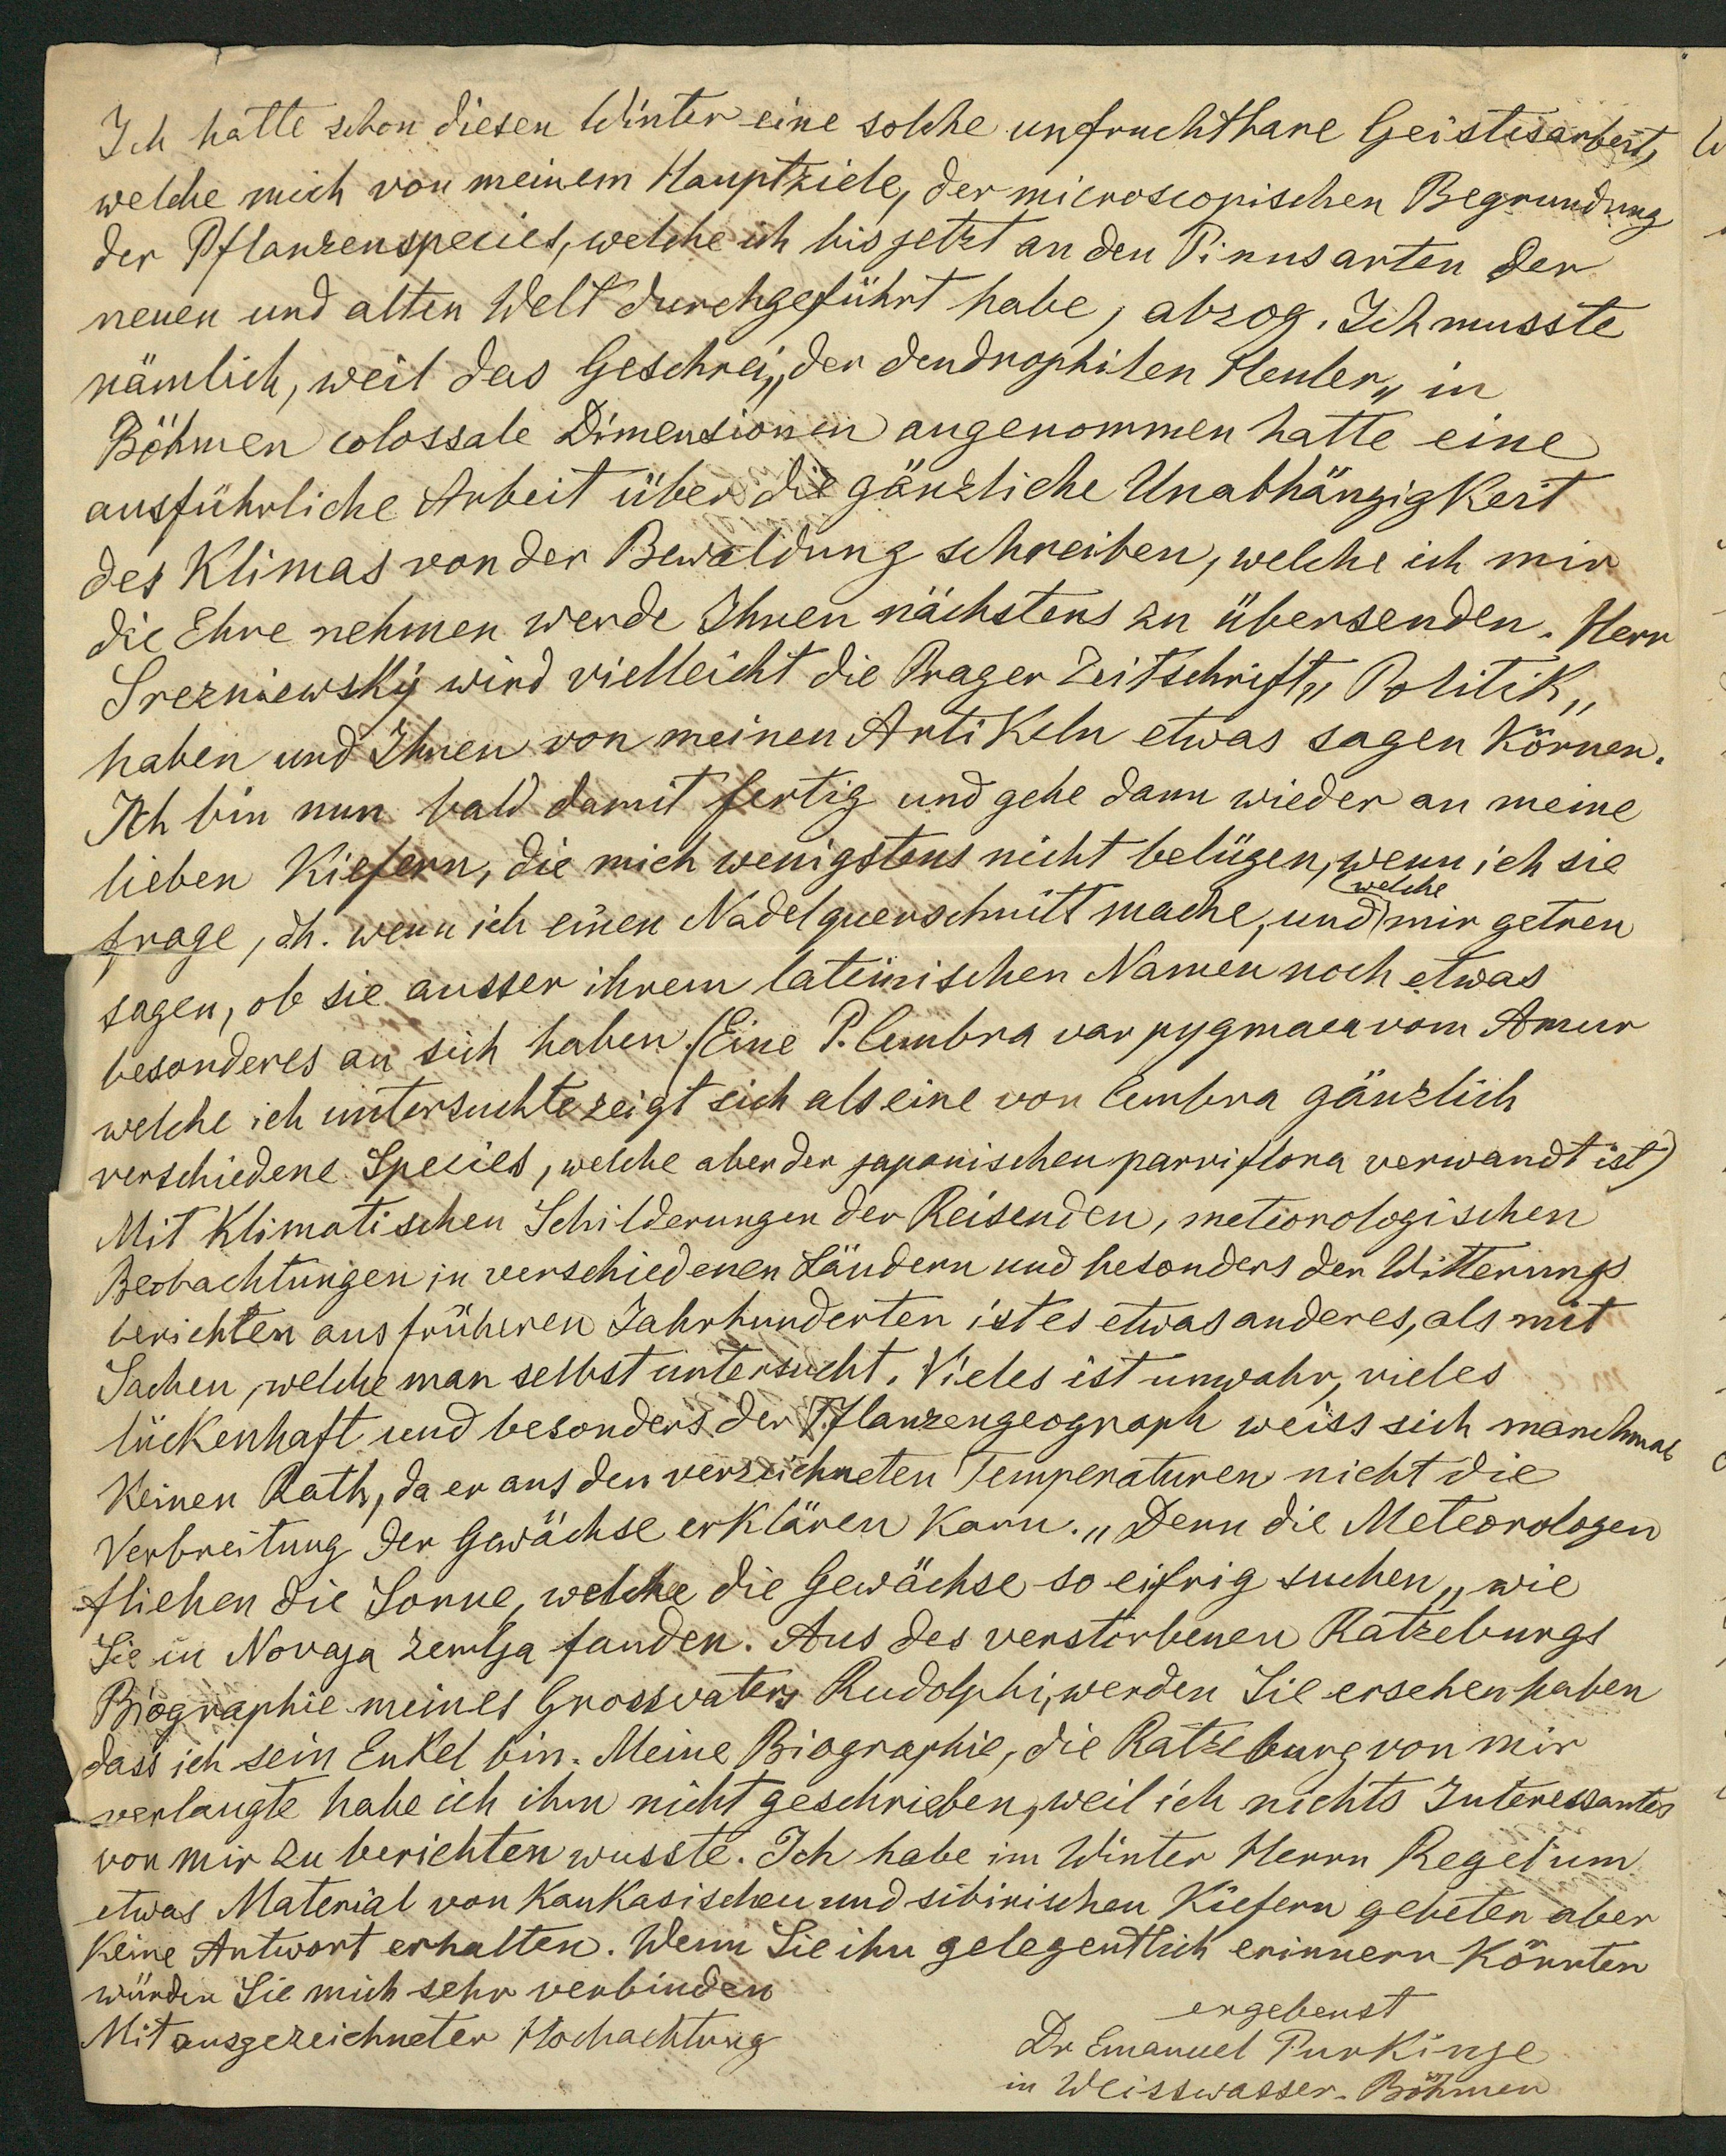 Ich hatte schon diesen Winter eine solche unfruchtbare Geistesarbeit,
welche mich von meinem Hauptziele, der microscopischen Begrundung
der Pflanzenspecies, welche ich bis jetzt an den Pinusarten der
neuen und alten Welt durchgeführt habe, abzog. Ich musste
nämlich, weil das Geschrei „der dendrophilen Heuler„ in
Böhmen colossale Dimensionen angenommen hatte eine
ausführliche Arbeit über die gänzliche Unabhängigkeit
des Klimas von der Bewaldung schreiben, welche ich mir
die Ehre nehmen werde Ihnen nächstens zu übersenden. Herr
Srezniewsky wird vielleicht die Prager Zeitschrift „Politik„
haben und Ihnen von meinen Artikeln etwas sagen können.
Ich bin nun bald damit fertig und gehe dann wieder an meine
lieben Kiefern, die mich wenigstens nicht belügen, wenn ich sie
frage, dh. wenn ich einen Nadelquerschnitt mache, und welche mir getreu
sagen, ob sie ausser ihrem lateinischen Namen noch etwas
besonderes an sich haben. (Eine P. Cembra var pygmaea vom Amur
welche ich untersuchte zeigt sich als eine von Cembra gänzlich
verschiedene Species, welche aber der japanischen parviflora verwandt ist)
Mit klimatischen Schilderungen der Reisenden, meteorologischen
Beobachtungen in verschiedenen Ländern und besonders den Witterungs
berichten aus früheren Jahrhunderten ist es etwas anderes, als mit
Sachen, welche man selbst untersucht. Vieles ist unwahr, vieles
lückenhaft und besonders der Pflanzengeograph weiss sich manchmal
keinen Rath, da er aus den verzeichneten Temperaturen nicht die
Verbreitung der Gewächse erklären kann. „Denn die Meteorologen
fliehen die Sonne, welche die Gewächse so eifrig suchen„ wie
Sie in Novaja Zemlja fanden. Aus des verstorbenen Ratzeburgs
Biographie meines Grossvaters Rudolphi, werden Sie ersehen haben
dass ich sein Enkel bin. Meine Biographie, die Ratzeburg von mir
verlangte habe ich ihm nicht geschrieben, weil ich nichts Interessantes
von mir zu berichten wusste. Ich habe im Winter Herrn Regel um
etwas Material von kaukasischen und sibirischen Kiefern gebeten aber
keine Antwort erhalten. Wenn Sie ihn gelegentlich erinnern könnten
würden Sie mich sehr verbinden
Mit ausgezeichneter Hochachtung
ergebenst
Dr Emanuel Purkinje
in Weisswasser. Böhmen